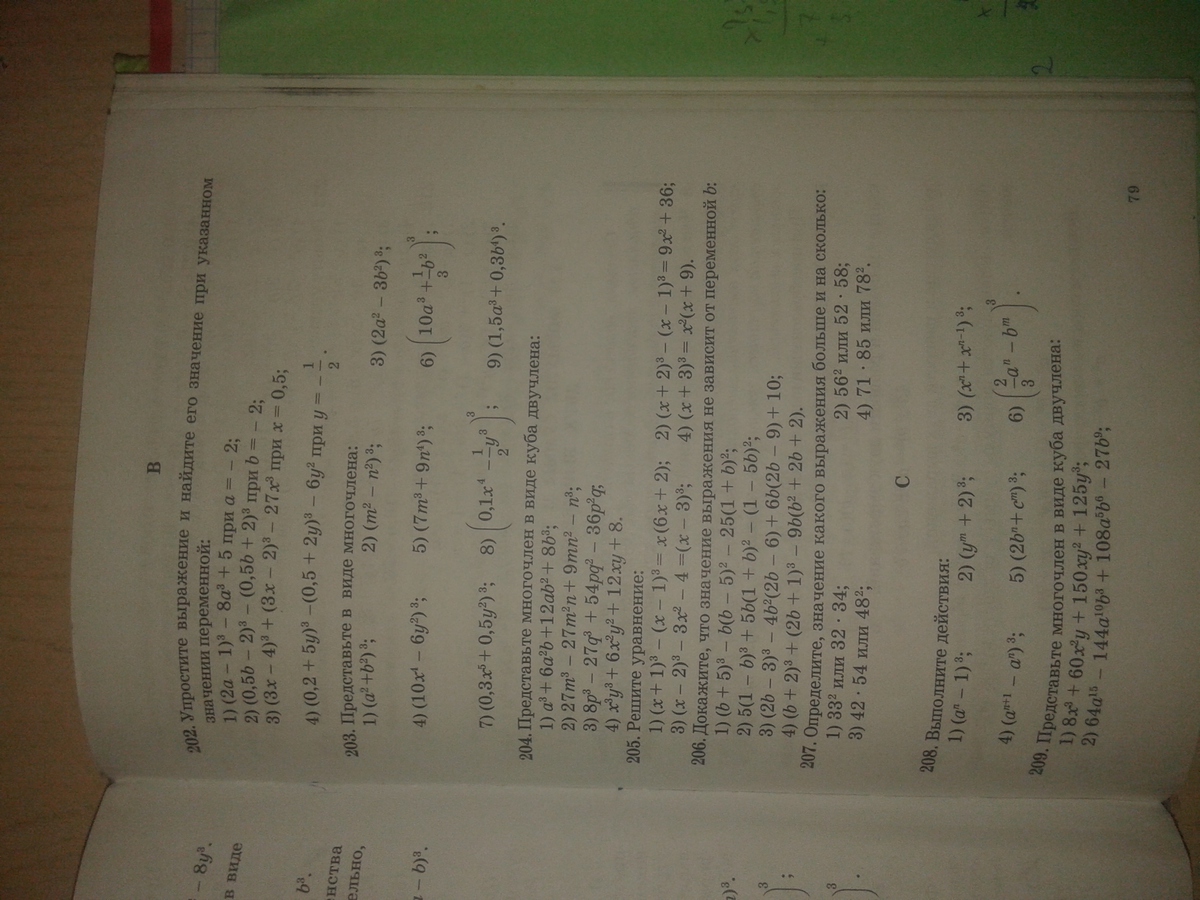 В
202. Упростите выражение и найдите его значение при указанном
значении переменной:
1) (2a − 1)³ − 8a³ + 5 при a = − 2;
2) (0,5b − 2)³ − (0,5b + 2)³ при b = − 2;
3) (3x − 4)³ + (3x − 2)³ − 27x³ при x = 0,5;
4) (0,2 + 5y)³ −(0,5 + 2y)³ − 6y² при y = − 1/2.
203. Представьте в виде многочлена:
1) (a² + b²)³; 2) (m² − n²)³; 3) (2a² − 3b²)³;
4) (10x⁴ − 6y²)³; 5) (7m³ + 9n⁴)³; 6) (10a³ + 1/3 b²)³;
7) (0,3x⁵ + 0,5y²)³; 8) (0,1x⁴ − 1/2 y³)³; 9) (1,5a³ + 0,3b⁴)³.
204. Представьте многочлен в виде куба двучлена:
1) a³ + 6a²b + 12ab² + 8b³;
2) 27m³ − 27m²n + 9mn² − n³;
3) 8p³ − 27q³ + 54pq² − 36p²q;
4) x³y³ + 6x²y² + 12xy + 8.
205. Решите уравнение:
1) (x + 1)³ − (x − 1)³ = x(6x + 2); 2) (x + 2)³ − (x − 1)³ = 9x² + 36;
3) (x − 2)³ − 3x² − 4 = (x − 3)³; 4) (x + 3)³ = x²(x + 9).
206. Докажите, что значение выражения не зависит от переменной b:
1) (b + 5)³ − b(b − 5)² − 25(1 + b)²;
2) 5(1 − b)³ + 5b(1 + b)² − (1 − 5b)²;
3) (2b − 3)³ − 4b²(2b − 6) + 6b(2b − 9) + 10;
4) (b + 2)³ + (2b + 1)³ − 9b(b² + 2b + 2).
207. Определите, значение какого выражения больше и на сколько:
1) 33² или 32 · 34; 2) 56² или 52 · 58;
3) 42 · 54 или 48²; 4) 71 · 85 или 78².
С
208. Выполните действия:
1) (aⁿ − 1)³; 2) (yᵐ + 2)³; 3) (xⁿ + xⁿ⁻¹)³;
4) (aⁿ⁺¹ − aⁿ)³; 5) (2bⁿ + cᵐ)³; 6) (2/3 aⁿ − bᵐ)³.
209. Представьте многочлен в виде куба двучлена:
1) 8x³ + 60x²y + 150xy² + 125y³;
2) 64a¹⁵ − 144a¹⁰b³ + 108a⁵b⁶ − 27b⁹;
79
− 8y³.
в виде
b³.
ельно,
− b)³.